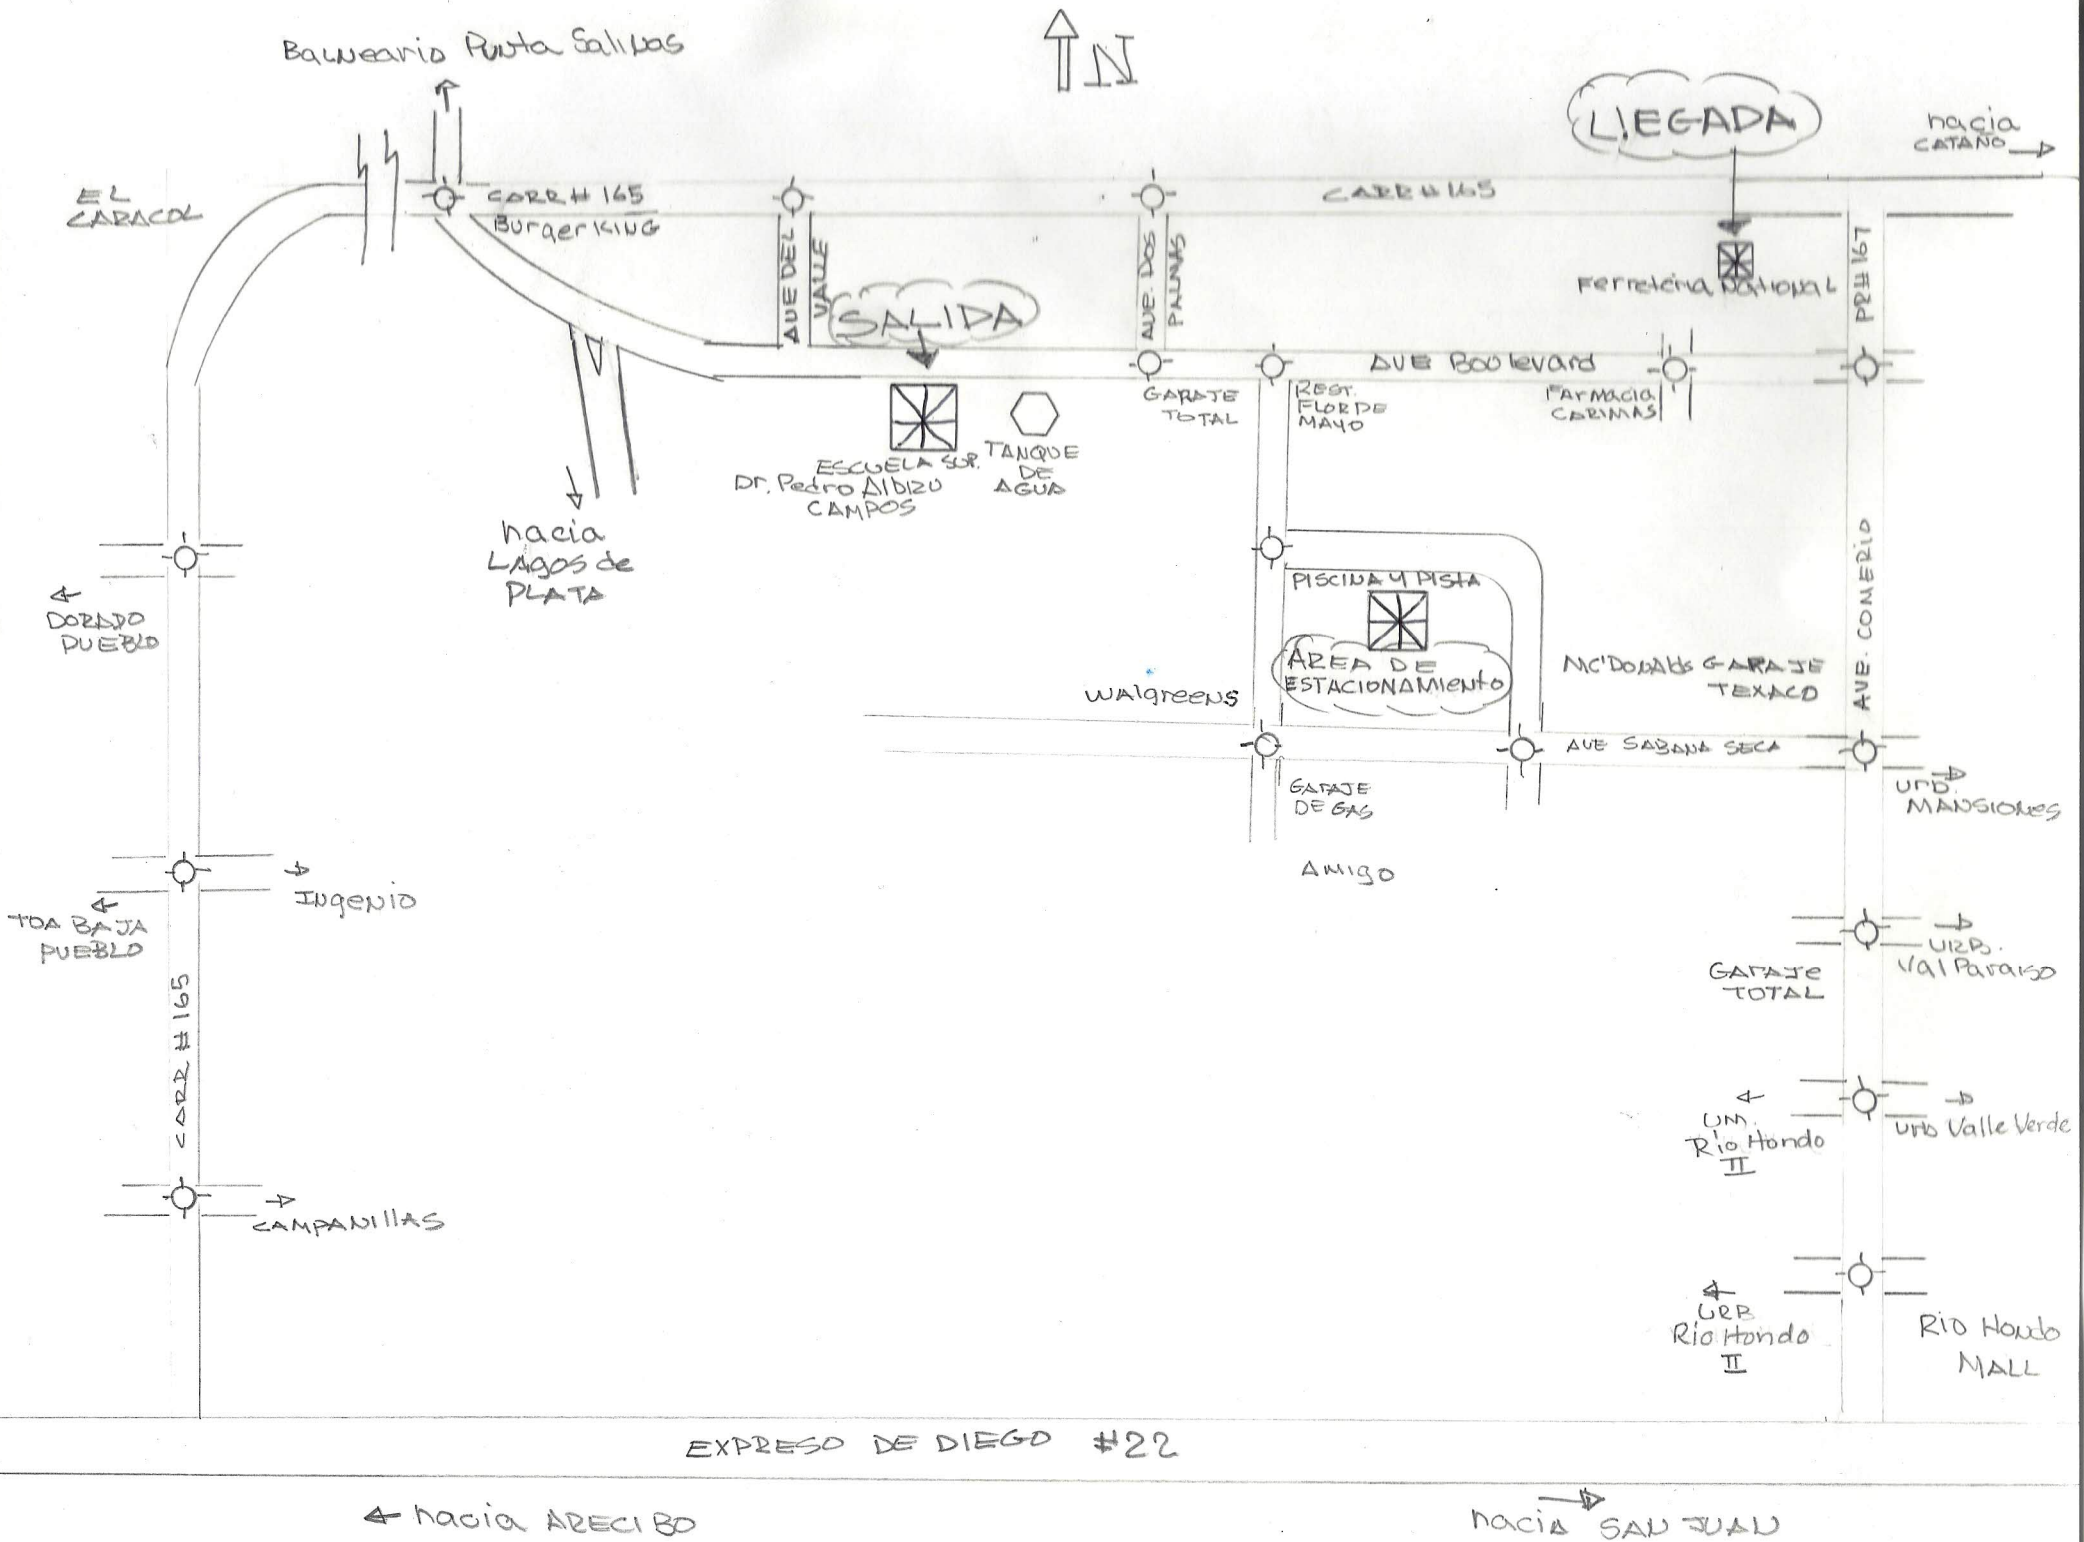 Balneario Punta Salinas
N
LLEGADA
hacia
CATAÑO
EL
CARACOL
CARR # 165
Burger KING
CARR # 165
AVE DEL
VALLE
AVE. DOS
PALMAS
PR# 167
SALIDA
Ferreteria National
AVE Boulevard
GARAJE
TOTAL
REST.
FLOR DE
MAYO
FARMACIA
CARIMAS
ESCUELA SUP.
Dr. Pedro Albizu
CAMPOS
TANQUE
DE
AGUA
hacia
LAgos de
PLATA
DORADO
PUEBLO
PISCINA Y PISTA
AREA DE
ESTACIONAMIENTO
AVE. COMERIO
MC'DONALDS GARAJE
TEXACO
WAlgreens
AVE SABANA SECA
GARAJE
DE GAS
Urb.
MANSIONES
AMIgo
INgenio
TOA BAJA
PUEBLO
CARR # 165
URB.
Val Paraiso
GARAJE
TOTAL
Río Hondo
II
Urb Valle Verde
CAMPANIllAS
URB
Río Hondo
II
RIO HONDO
MALL
EXPRESO DE DIEGO #22
hacia ARECIBO
hacia SAN JUAN